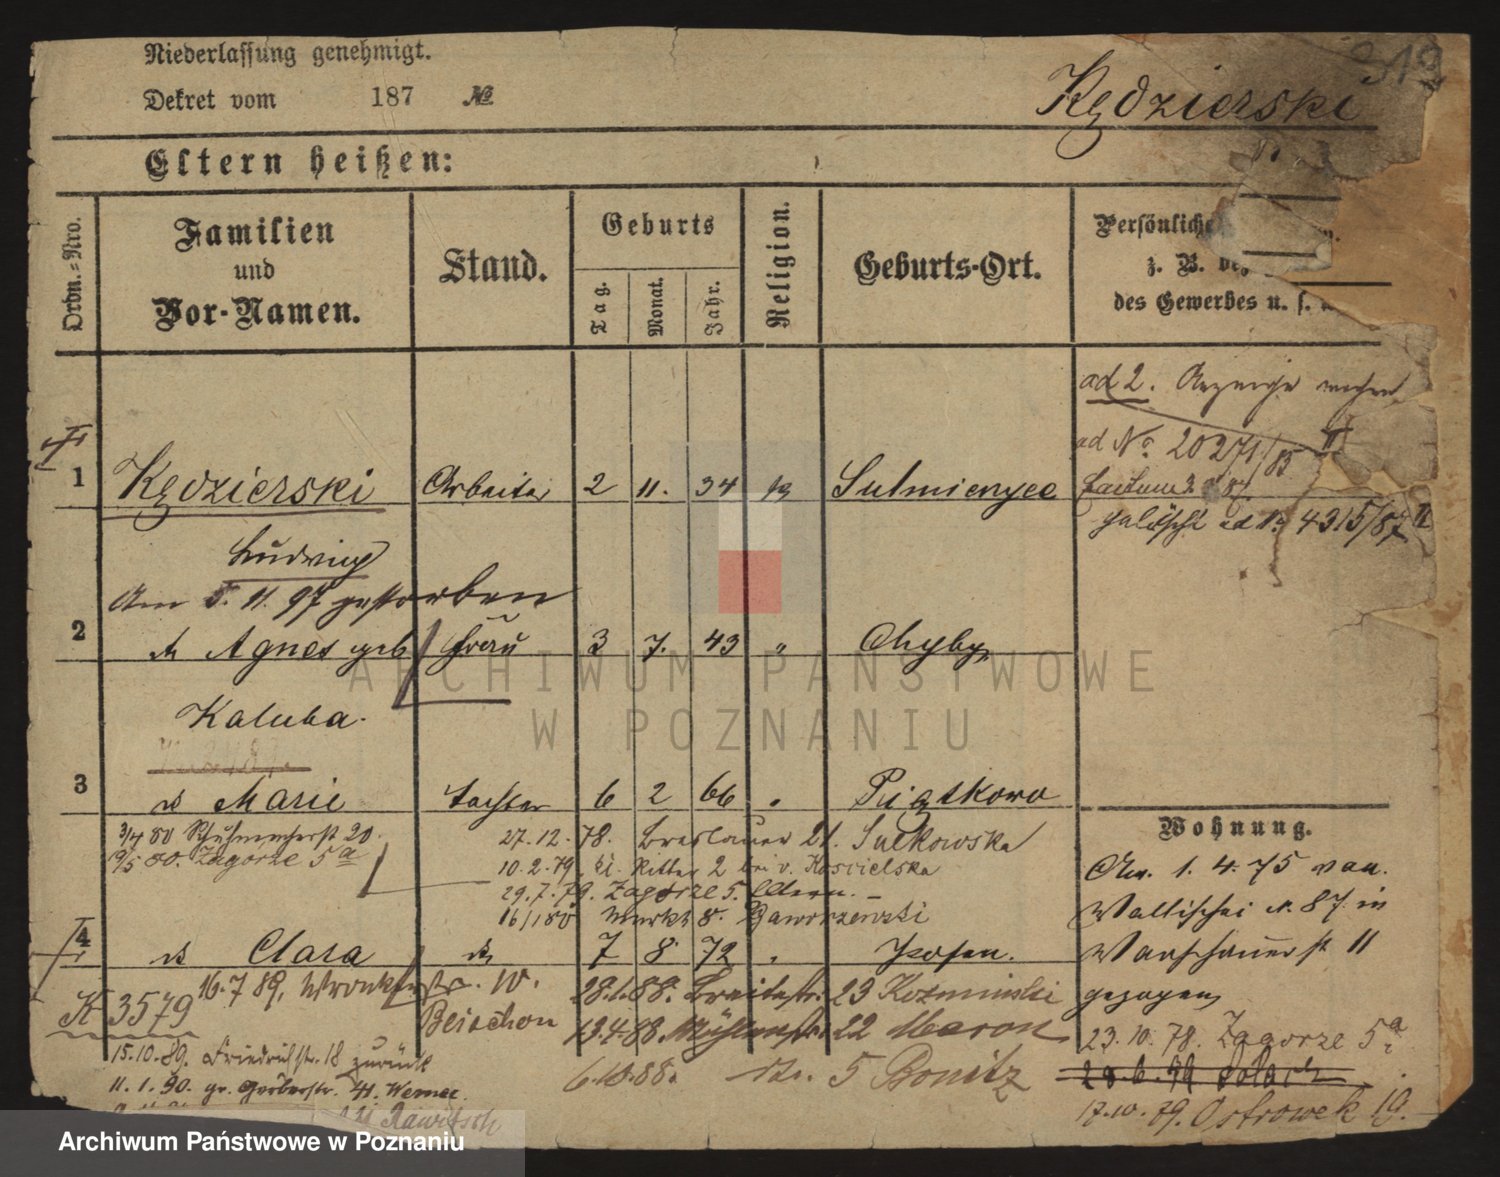 Niederlassung genehmigt.
Dekret vom 187 №
319
Kędzierski
Eltern heißen:
Ordn.-Nro.
Familien
und
Vor-Namen.
Stand.
Geburts
Tag.
Monat.
Jahr.
Religion.
Geburts-Ort.
Persönliche
z. B.
des Gewerbes u. s.
ad 2.
ad No 20271/85 II
1 Kędzierski Arbeiter 2 11. 34 Sulmierzyce
gelöscht ad 4315/87 II
Ludwig
Am 5. 11. 97 gestorben
2 Agnes geb Frau 3 7. 43 " Chyby
ARCHIWUM PAŃSTWOWE
W POZNANIU
Kaluba.
3 Marie Tochter 6 2 66 " Piątkowo
Wohnung.
3/4 80 Schuhmacherst 20.
19/5 80. Zagorze 5a
27.12.78. Breslauer 21. Sulkowska
10.2.79. kl. Ritter 2 bei v. Koscielska
29.7.79. Zagorze 5. Eltern. –
16/1 80 Markt 8. Jaworzewski
Chw. 1. 4. 75 von
Wallischei N. 87 in
Warschauerst 11
gezogen
4 Clara 7 8 72 " Posen.
K 3579
16.7.89. Wronkerstr. 10.
Beischon
28.1.88. Breitestr. 23 Kozminski
13.4.88 Mühlenstr. 22 Maron
6.10.88. 5 Bonitz
15.10.89. Friedrichstr. 18 zurück
11. 1. 90. gr. Gerberstr. 41. Werner.
Rawitsch
23.10.78. Zagorze 5a.
17.10.79. Ostrowek 19.
Archiwum Państwowe w Poznaniu